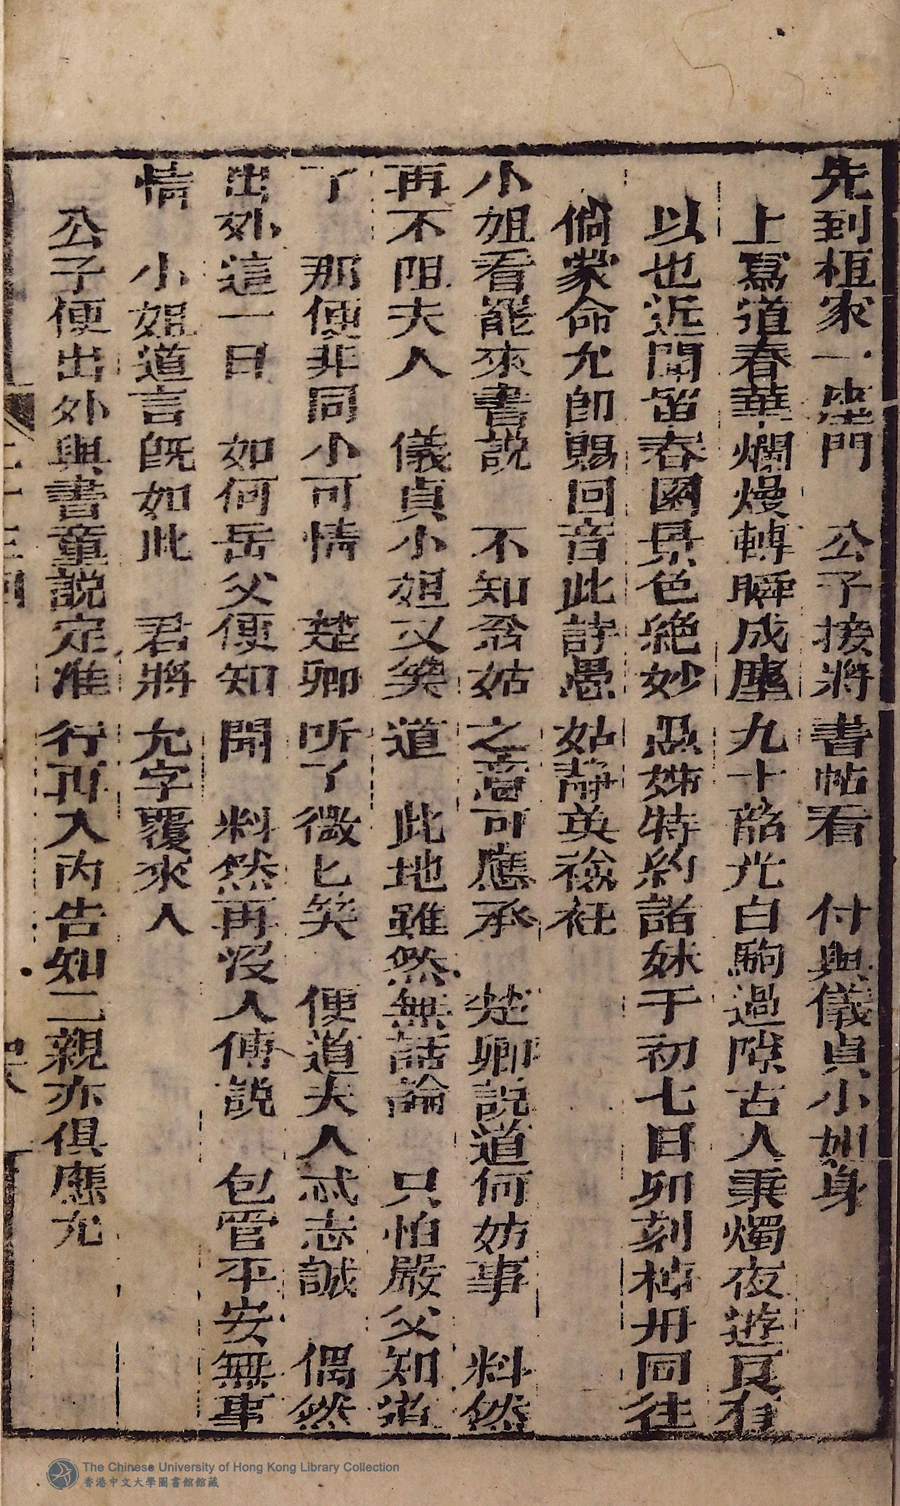 先到桓家一座門　公子接將書帖看　付與儀貞小姐身
上寫道春華爛熳轉瞬成塵九十韶光白駒過隙古人秉燭夜遊良有
以也近聞留春園景色絶妙愚姊特約諸妹于初七日卯刻棹舟同往
倘蒙命允卽賜回音此訂愚姑靜英襝衽
小姐看罷來書説　不知翁姑之意可應承　楚卿説道何妨事　料然
再不阻夫人　儀貞小姐又笑道　此地雖然無話論　只怕嚴父知道
了　那便非同小可情　楚卿听了微匕笑　便道夫人忒志誠　偶然
出外這一日　如何岳父便知聞　料然再没人傳説　包管平安無事
情　小姐道言旣如此　君將允字覆來人
公子便出外與書童説定准行再入内告知二親亦俱應允
The Chinese University of Hong Kong Library Collection
香港中文大學圖書館館藏